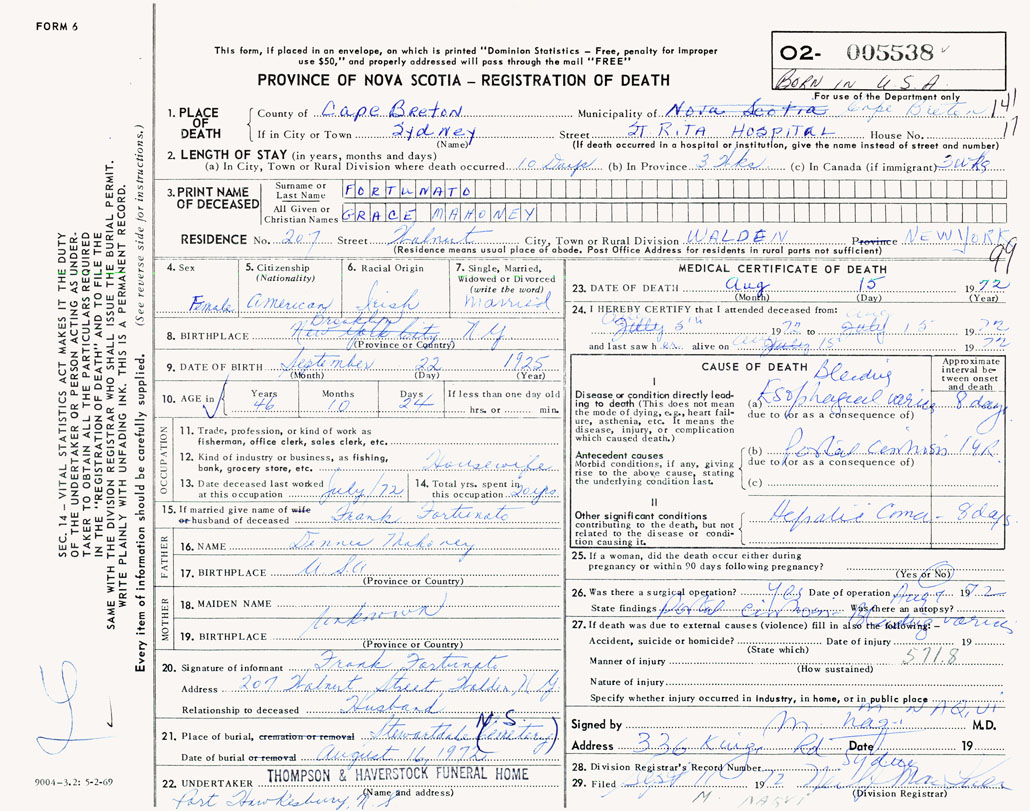 FORM 6
This form, if placed in an envelope, on which is printed "Dominion Statistics – Free, penalty for improper
use $50," and properly addressed will pass through the mail "FREE"
PROVINCE OF NOVA SCOTIA – REGISTRATION OF DEATH
02- 005538
BORN IN U.S.A
For use of the Department only
141
17
1. PLACE OF DEATH County of Cape Breton Municipality of Nova Scotia Cape Breton
If in City or Town Sydney Street ST. RITA HOSPITAL House No.
(Name) (If death occurred in a hospital or institution, give the name instead of street and number)
2. LENGTH OF STAY (in years, months and days)
(a) In City, Town or Rural Division where death occurred 10 Days (b) In Province 3 Wks (c) In Canada (if immigrant) 3 wks
3. PRINT NAME OF DECEASED Surname or Last Name FORTUNATO
All Given or Christian Names GRACE MAHONEY
RESIDENCE No. 207 Street Walnut City, Town or Rural Division WALDEN Province NEW YORK
(Residence means usual place of abode. Post Office Address for residents in rural parts not sufficient)
99
4. Sex Female
5. Citizenship (Nationality) American
6. Racial Origin Irish
7. Single, Married, Widowed or Divorced (write the word) Married
8. BIRTHPLACE New York City Brooklyn N.Y
(Province or Country)
9. DATE OF BIRTH September 22 1925
(Month) (Day) (Year)
10. AGE in Years 46 Months 10 Days 24 If less than one day old hrs. or min.
OCCUPATION
11. Trade, profession, or kind of work as
fisherman, office clerk, sales clerk, etc.
12. Kind of industry or business, as fishing,
bank, grocery store, etc. Housewife
13. Date deceased last worked
at this occupation July/72
14. Total yrs. spent in
this occupation 20 yrs
15. If married give name of wife
or husband of deceased Frank Fortunato
FATHER
16. NAME Dennis Mahoney
17. BIRTHPLACE USA
(Province or Country)
MOTHER
18. MAIDEN NAME Unknown
19. BIRTHPLACE
(Province or Country)
20. Signature of informant Frank Fortunato
Address 207 Walnut Street Walden, N.Y.
Relationship to deceased Husband
21. Place of burial, cremation or removal Stewartdale (Cemetery) N.S
Date of burial or removal August 16, 1972
22. UNDERTAKER THOMPSON & HAVERSTOCK FUNERAL HOME
(Name and address)
Port Hawkesbury, N.S
MEDICAL CERTIFICATE OF DEATH
23. DATE OF DEATH Aug 15 1972
(Month) (Day) (Year)
24. I HEREBY CERTIFY that I attended deceased from:
July 5th 1972 to Aug July 15 1972
and last saw her alive on July 15 1972
CAUSE OF DEATH
Approximate interval between onset and death
I
Disease or condition directly leading to death (This does not mean the mode of dying, e.g., heart failure, asthenia, etc. It means the disease, injury, or complication which caused death.)
(a) Bleeding Esophageal varices 8 days
due to (or as a consequence of)
Antecedent causes
Morbid conditions, if any, giving rise to the above cause, stating the underlying condition last.
(b) portal cirrhosis 1 YR
due to (or as a consequence of)
(c)
II
Other significant conditions contributing to the death, but not related to the disease or condition causing it.
Hepatic Coma - 8 days
25. If a woman, did the death occur either during
pregnancy or within 90 days following pregnancy?
(Yes or No)
26. Was there a surgical operation? Yes Date of operation Aug 1972
State findings portal cirrhosis Was there an autopsy?
Bleeding varices
27. If death was due to external causes (violence) fill in also the following:–
Accident, suicide or homicide? Date of injury 19
(State which)
571.8
Manner of injury
(How sustained)
Nature of injury
Specify whether injury occurred in industry, in home, or in public place
M NAQVI
Signed by M Naqvi M.D.
Address 336 Kings Rd Date 19
Sydney
28. Division Registrar's Record Number
29. Filed Sept 11 1972
(Division Registrar)
M. NAQVI
SEC. 14 – VITAL STATISTICS ACT MAKES IT THE DUTY
OF THE UNDERTAKER OR PERSON ACTING AS UNDER-
TAKER TO OBTAIN ALL THE PARTICULARS REQUIRED
IN THE "REGISTRATION OF DEATH" AND FILE THE
SAME WITH THE DIVISION REGISTRAR WHO SHALL ISSUE THE BURIAL PERMIT.
WRITE PLAINLY WITH UNFADING INK. THIS IS A PERMANENT RECORD.
Every item of information should be carefully supplied. (See reverse side for instructions.)
9004-3.2: 5-2-69